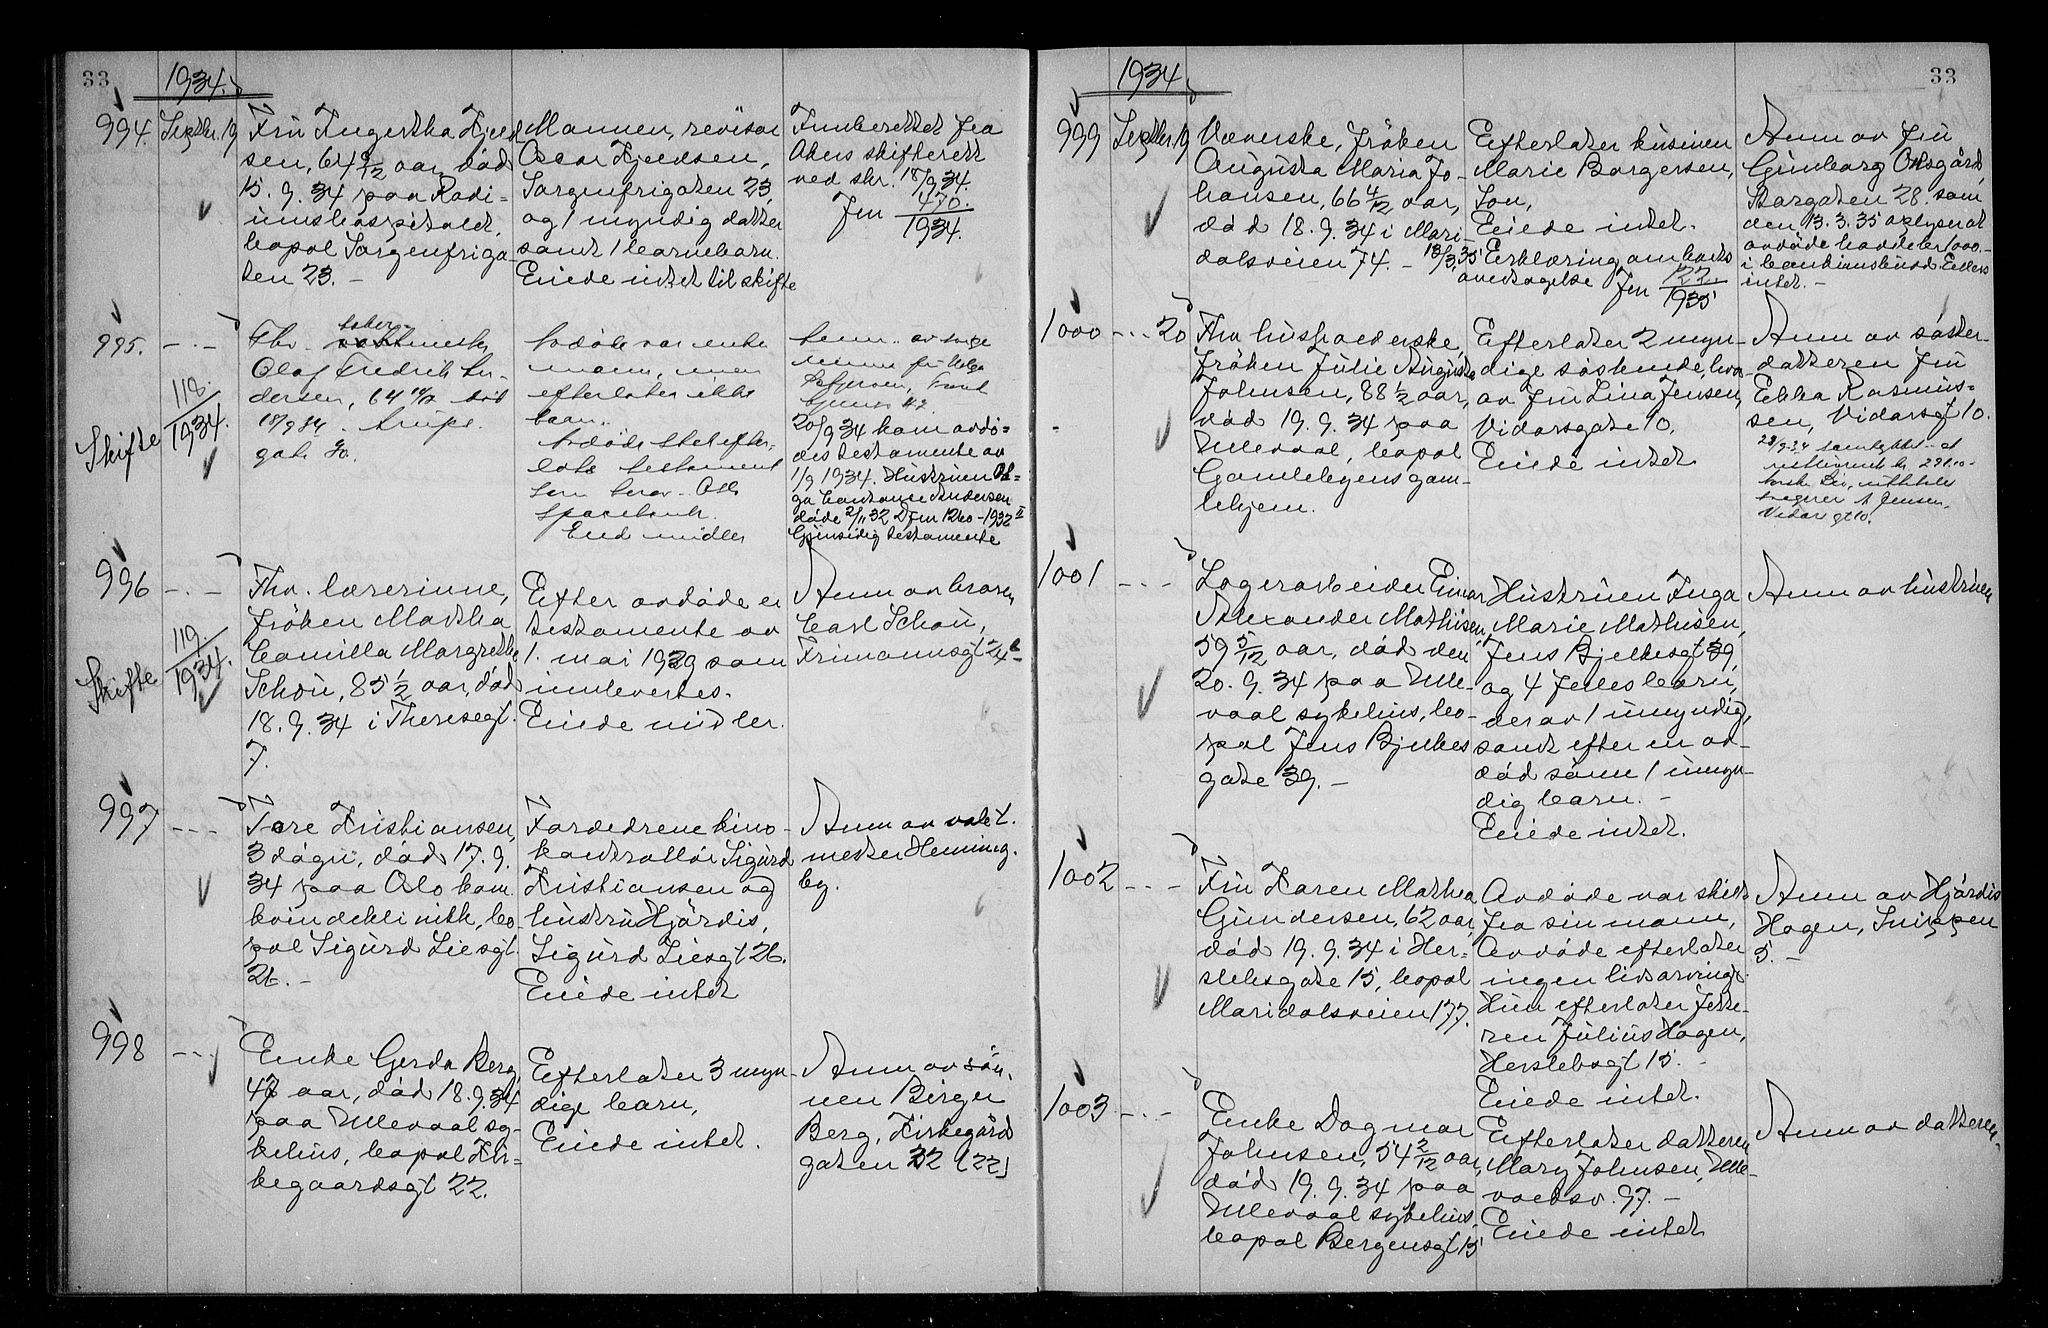 33
1934.
994.
Septbr. 19
Fru Ingertha Kjeld
sen, 64 9/12 aar, død
15.9.34 paa Radi=
umshospitalet,
bopæl Sorgenfriga
ten 23. –
Mannen, revisor
Oscar Kjeldsen,
Sorgenfrigaten 23,
og 1 myndig datter
samt 1 barnebarn.
Eiede intet til skifte
Innberettet fra
Akers skifterett
ved skr. 18/9 34.
Jnr 470.
1934.
995.
– . –
118.
1934.
Skifte
Fhv.
Olaf Fredrik An-
dersen, 64 død
18/9 34.
gate
Avdøde var enke
mann, men
efterlater ikke
barn.
Avdøde skal efter-
late testament
som beror Oslo
Sparebank.
Eied midler
Anm. av
20/9 34 kom avdø=
des testamente av
1/9 1934. Hustruen Ol=
ga Constance Andersen
døde 2/11 32 Jnr 1260–1932 II
Gjensidig testamente
996
– . –
119.
1934.
Skifte
Fhv. lærerinne,
frøken Martha
Camilla Margrethe
Schou, 85 1/2 aar, død
18.9.34 i Theresegt.
7.
Efter avdøde er
testamente av
1. mai 1929 som
innlevertes.
Eiede midler.
Anm av broren
Carl Schou,
Frimannsgt 24
997
– – –
Tore Kristiansen,
3 døgn, død 17.9.
34 paa Oslo kom.
kvindeklinikk, bo
pæl Sigurd Liesgt.
26. –
Foreldrene kino-
kontrollør Sigurd
Kristiansen og
hustru Hjørdis,
Sigurd Liesgt 26.
Eiede intet
Anm av vakt.
mester Henning.
by.
998
– – –
Enke Gerda Berg,
47 aar, død 18.9.34
paa Ullevaal sy-
kehus, bopæl Kir=
kegaardsgt 22.
Efterlater 3 myn-
dige barn,
Eiede intet.
Anm av søn-
nen Birger
Berg, Kirkegård
gaten 32 [22]
33
1934
999
Septbr. 19
Væverske, frøken
Augusta Maria Jo-
hansen, 66 4/12 aar,
død 18.9.34 i Mari-
dalsveien 74. –
Efterlater kusinen
Marie Borgersen,
Son,
Eiede intet.
18/3. 35 Erklæring om boets
overtagelse Jnr 722
1935
Anm av fru
Gunborg Olsgård,
Storgaten 28. som
den 13.3.35 oplyser at
avdøde hadde kr 1000.–
i bankinnskudd Ellers
intet. –
1000
– – 20
Fhv husholderske,
frøken Julie Augusta
Johnsen, 88 1/2 aar,
død 19.9.34 paa
Ullevaal, bopæl
Gamlebyens gam-
lehjem.
Efterlater 2 myn-
dige søskende, hvor
av fru Lina Jensen,
Vidarsgate 10.
Eiede intet
Anm av søster-
datteren fru
Ebba Rasmus=
sen, Vidarsgt 10.
28/9 34 samtykket at
Norske Liv, utbetales
A Jensen,
Vidarsgt 10.
1001
– – –
Lagerarbeider Einar
Alexander Mathisen
59 5/12 aar, død den
20.9.34 paa Ulle-
vaal sykehus, bo-
pæl Jens Bjelkes
gate 39. –
Hustruen Inga
Marie Mathisen,
Jens Bjelkesgt 39,
og 4 felles barn,
derav 1 umyndig,
samt efter en av-
død sønn 1 umyn-
dig barn. –
Eiede intet.
Anm av hustruen
1002
– – –
Fru Karen Mathea
Gundersen, 62 aar,
død 19.9.34 i Her-
slebsgate 15, bopæl
Maridalsveien 177.
Avdøde var skilt
fra sin mann,
Avdøde efterlater
ingen livsarving.
Hun efterlater fette-
ren Julius Hagen,
Herslebsgt 15. –
Eiede intet.
Anm av Hjørdis
Hagen, Snippen
5. –
1003
– . –
Enke Dagmar
Johnsen, 54 2/12 aar,
død 19.9.34 paa
Ullevaal sykehus,
bopæl Bergensgt 15
Efterlater datteren
Mary Johnsen, Ulle-
vaalsv. 97. –
Eiede intet
Anm av datteren.